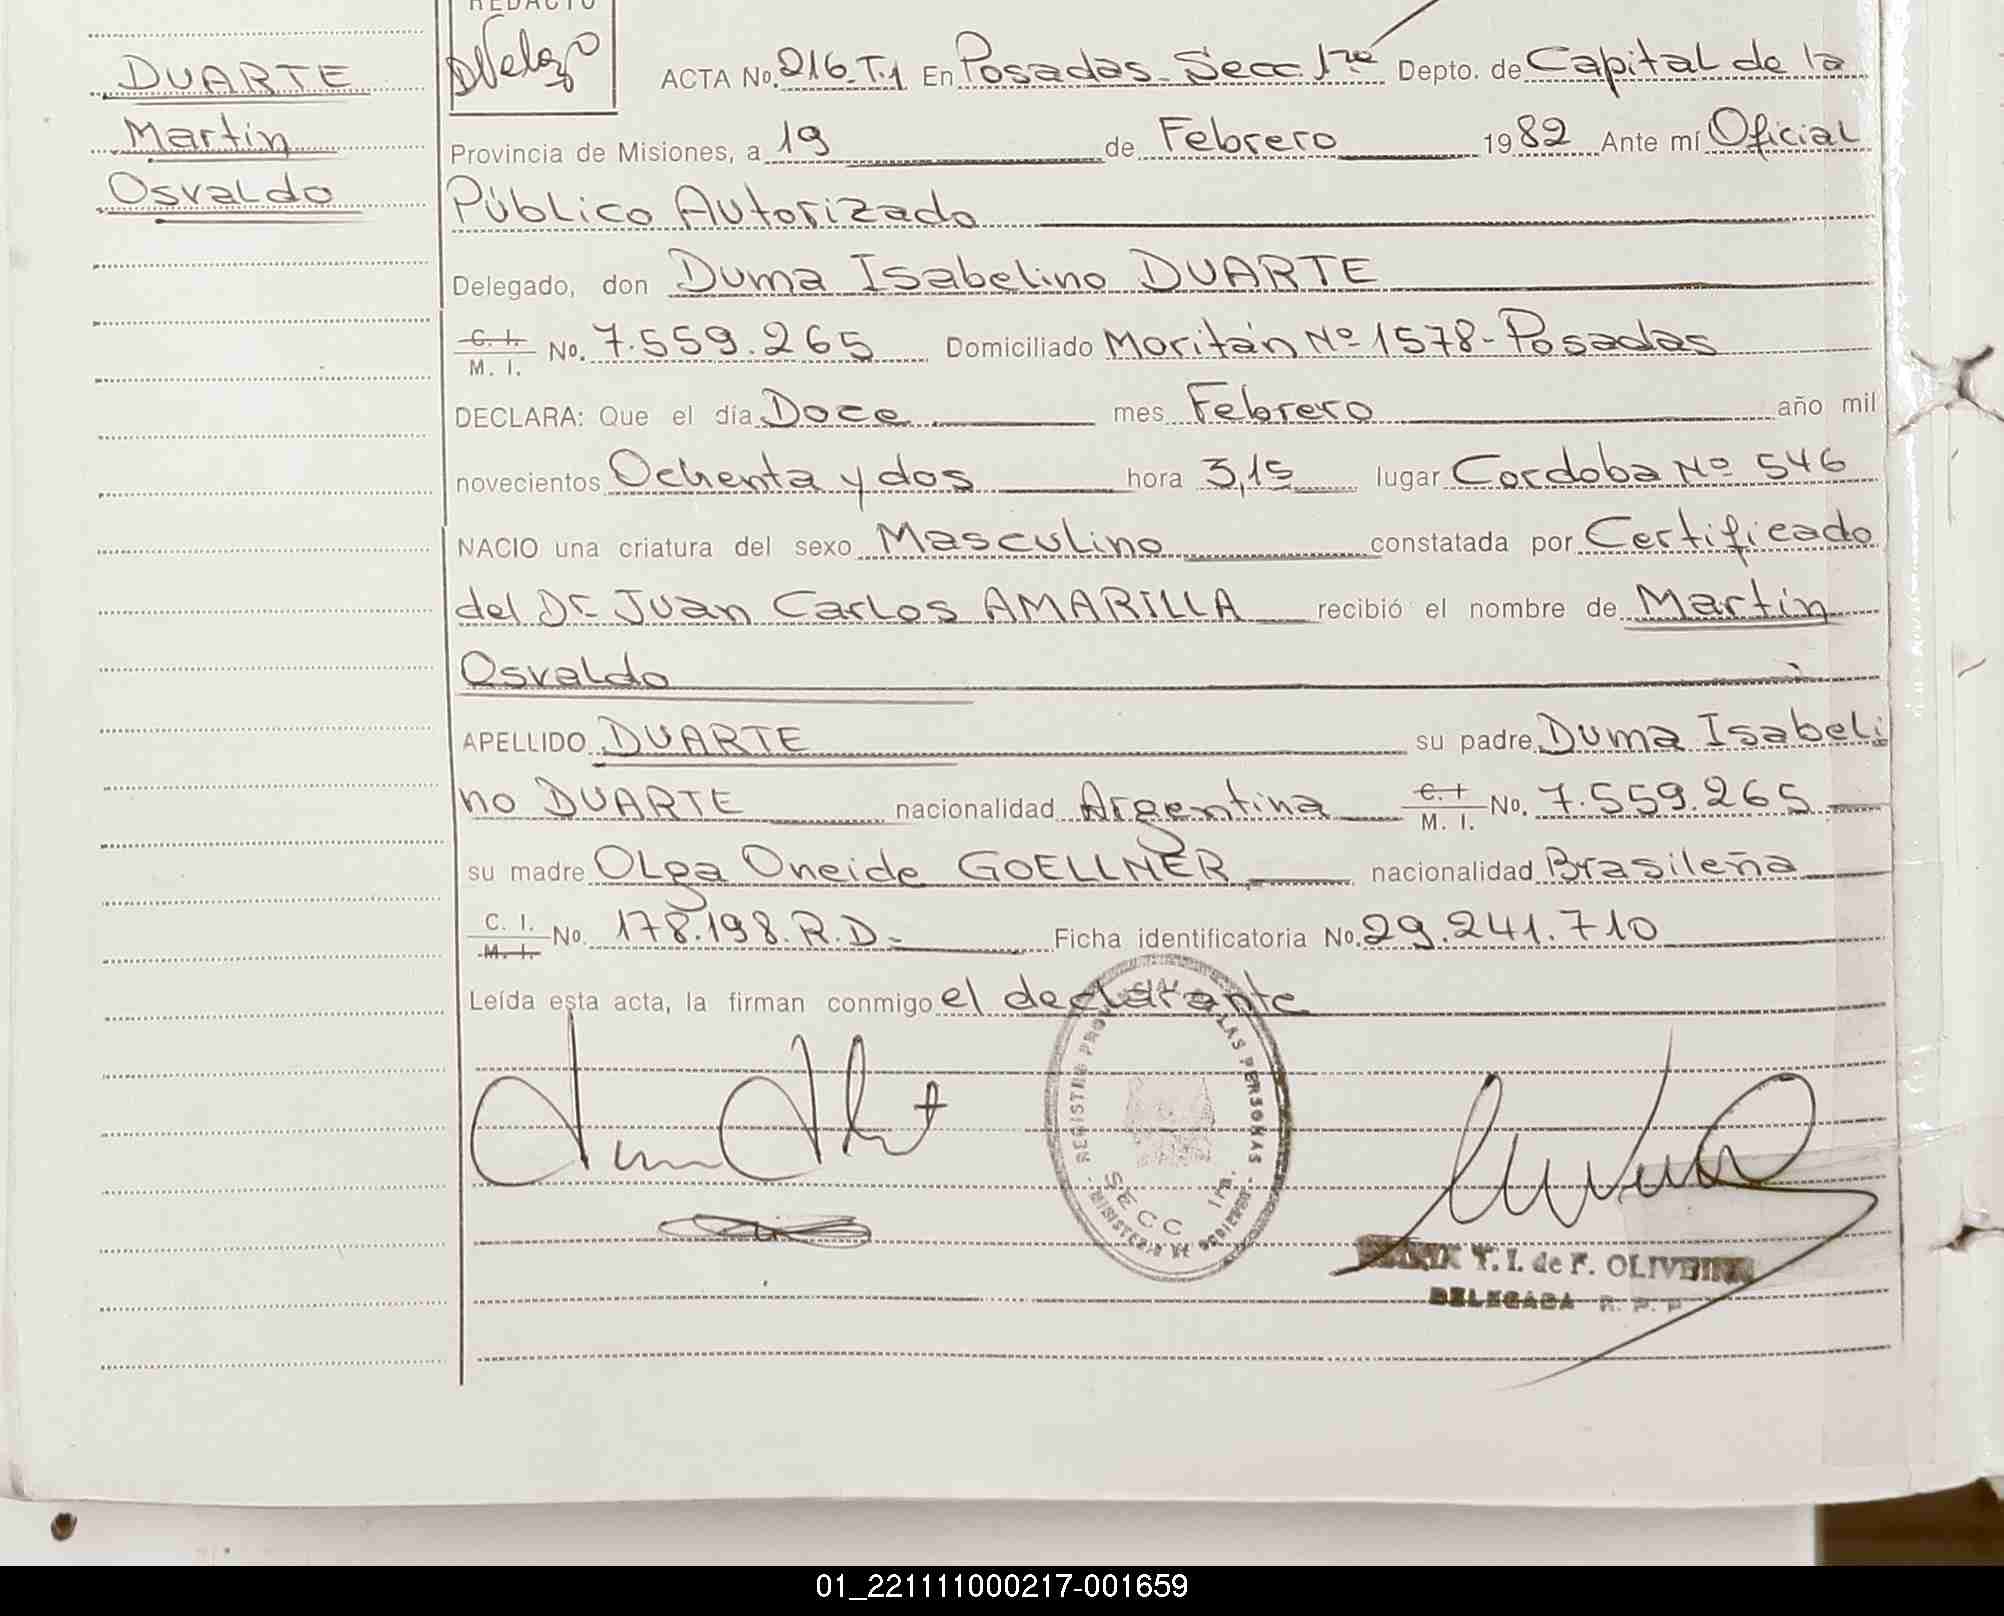 REDACTO
DUARTE
Martin
Osvaldo
DVelazo
ACTA No. 216.T.1 En Posadas-Secc. 1ra Depto. de Capital de la
Provincia de Misiones, a 19 de Febrero 1982 Ante mí Oficial
Público Autorizado
Delegado, don Duma Isabelino DUARTE
C. I. M. I. No. 7.559.265 Domiciliado Moritán Nº 1578-Posadas
DECLARA: Que el día Doce mes Febrero año mil
novecientos Ochenta y dos hora 3,15 lugar Cordoba Nº 546
NACIO una criatura del sexo Masculino constatada por Certificado
del Dr Juan Carlos AMARILLA recibió el nombre de Martin
Osvaldo
APELLIDO DUARTE su padre Duma Isabeli
no DUARTE nacionalidad Argentina C. I M. I. No. 7.559.265
su madre Olga Oneide GOELLNER nacionalidad Brasileña
C. I. M. I. No. 178.198.R.D.- Ficha identificatoria No. 29.241.710
Leída esta acta, la firman conmigo el declarante
REGISTRO PROVINCIAL DE LAS PERSONAS
SECC 1ra.
MINISTERIO DE GOBIERNO
T. I. de F. OLIVEIRA
DELEGADA R. P. P
01_221111000217-001659